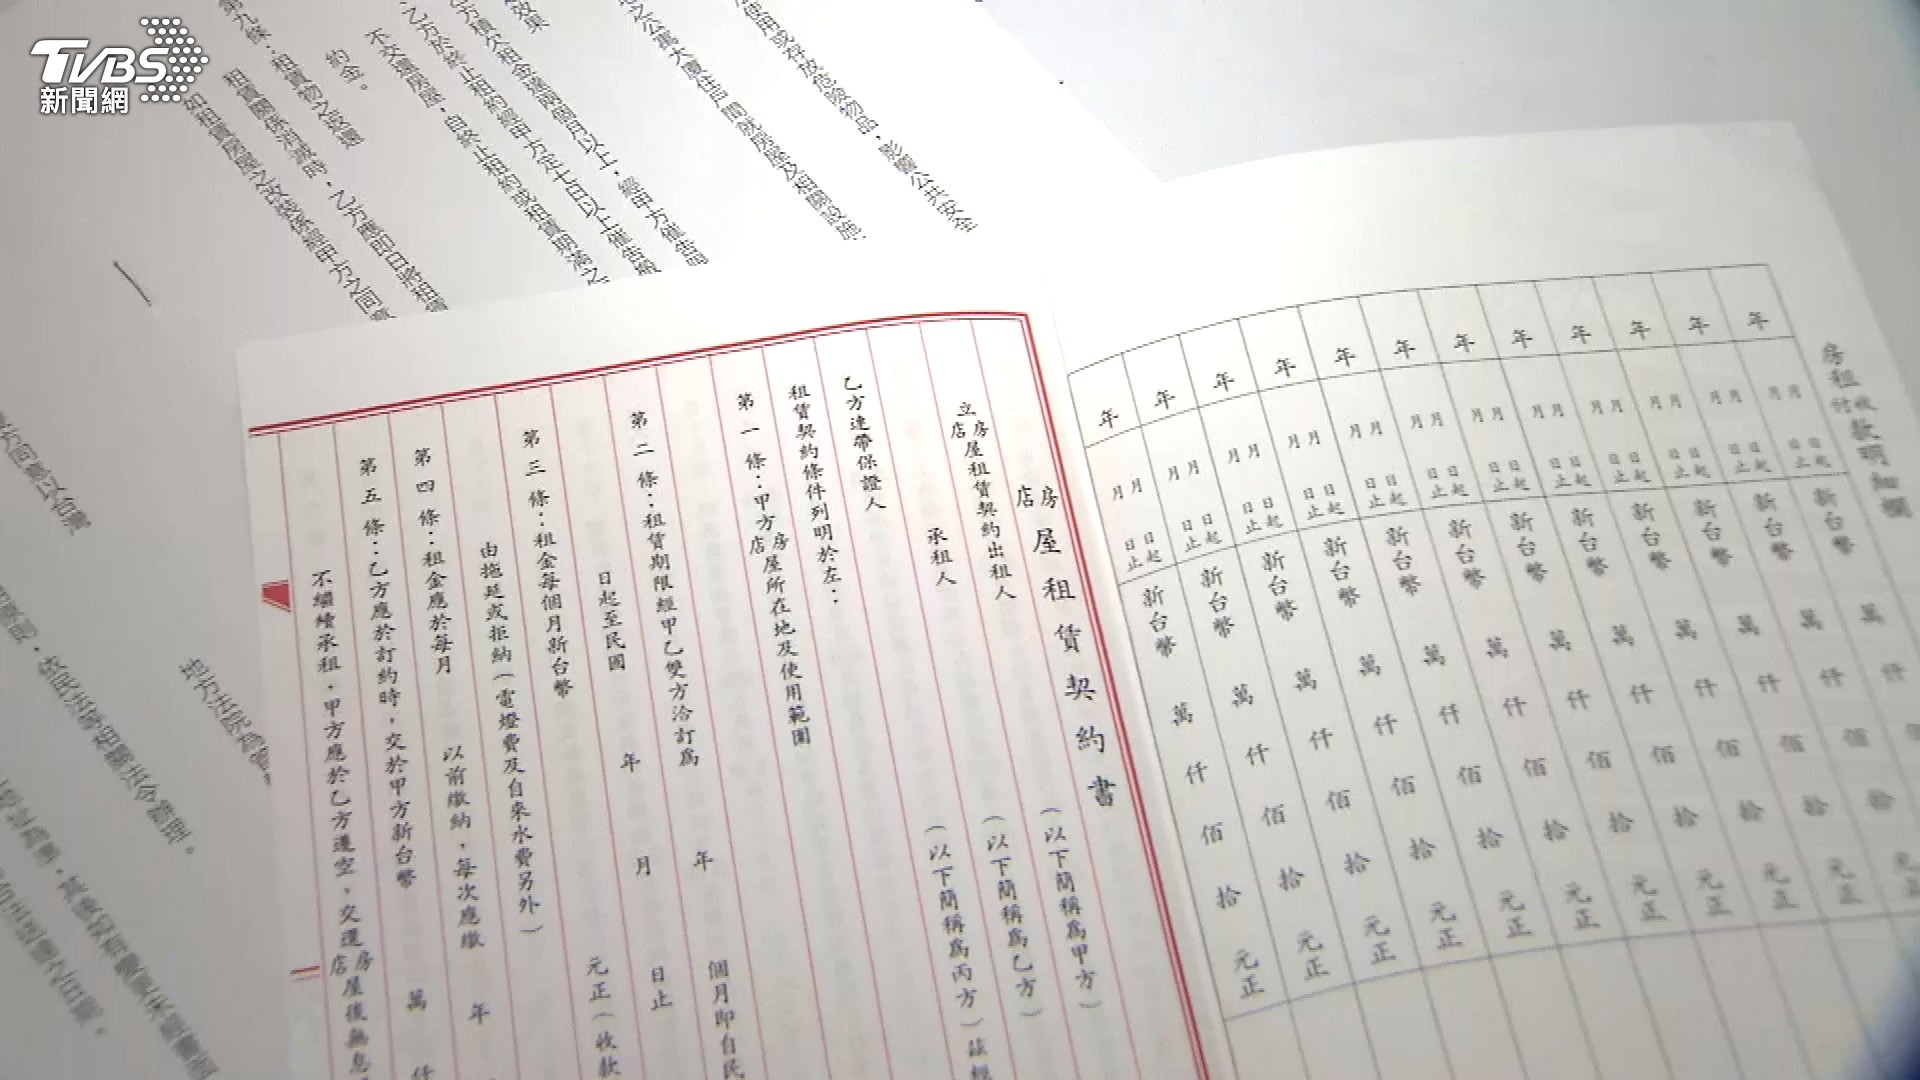 TVBS
新聞網
使用或存放危險物品，影響公共安全
之公寓大廈住戶間就房屋及相關設施
效果
乙方積欠租金達兩個月以上，經甲方催告
乙方於終止租約經甲方定七日以上催告
不交還房屋，自終止租約或租賃期滿之
約金。
第九條：租賃物之返還
租賃關係消滅時，乙方應即日將租賃
如租賃房屋之改裝係經甲方之同意
方同意以台灣
依民法等相關法令辦理。
地方法院為管
房租收付款明細欄
年 月 日起 月 日止 新台幣 萬 仟 佰 拾 元正
年 月 日起 月 日止 新台幣 萬 仟 佰 拾 元正
年 月 日起 月 日止 新台幣 萬 仟 佰 拾 元正
年 月 日起 月 日止 新台幣 萬 仟 佰 拾 元正
年 月 日起 月 日止 新台幣 萬 仟 佰 拾 元正
年 月 日起 月 日止 新台幣 萬 仟 佰 拾 元正
年 月 日起 月 日止 新台幣 萬 仟 佰 拾 元正
年 月 日起 月 日止 新台幣 萬 仟 佰 拾 元正
年 月 日起 月 日止 新台幣 萬 仟 佰 拾 元正
年 月 日起 月 日止 新台幣 萬 仟 佰 拾 元正
年 月 日起 月 日止 新台幣 萬 仟 佰 拾 元正
年 月 日起 月 日止 新台幣 萬 仟 佰 拾 元正
房店屋租賃契約書
立房店屋租賃契約出租人 （以下簡稱為甲方）
承租人 （以下簡稱為乙方）
乙方連帶保證人 （以下簡稱為丙方）茲經
租賃契約條件列明於左：
第一條：甲方房店屋所在地及使用範圍
第二條：租賃期限經甲乙雙方洽訂為 年 個月即自民
日起至民國 年 月 日止
第三條：租金每個月新台幣 元正（收款
由拖延或拒納（電燈費及自來水費另外）
第四條：租金應於每月 以前繳納，每次應繳 年
第五條：乙方應於訂約時，交於甲方新台幣 萬 仟
不繼續承租，甲方應於乙方遷空、交還房店屋後無息